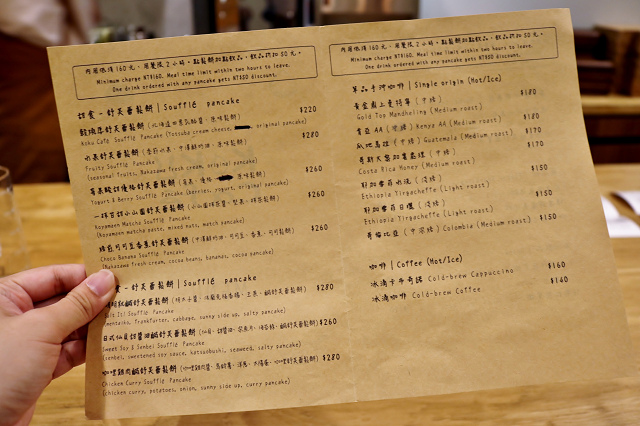 內用低消160元。用餐限2小時。點鬆餅加點飲品,飲品折扣50元。
Minimum charge NT$160. Meal time limit within two hours to leave.
One drink ordered with any pancake gets NT$50 discount.
甜食-舒芙蕾鬆餅 | Soufflé pancake
$220
Koku Café Soufflé Pancake (Totsuka cream cheese, original pancake)
水果舒芙蕾鬆餅 $280
Fruity Soufflé Pancake
(seasonal fruits, Nakazawa fresh cream, original pancake)
莓果酸甜優格舒芙蕾鬆餅 $260
Yogurt & Berry Soufflé Pancake (berries, yogurt, original pancake)
一杯百甜小山園舒芙蕾鬆餅 $260
Koyamaen Matcha Soufflé Pancake
(Koyamaen matcha paste, mixed nuts, match pancake)
$260
Choco Banana Soufflé Pancake
(Nakazawa fresh cream, cocoa beans, bananas, cocoa pancake)
食-舒芙蕾鬆餅 | Soufflé pancake
$280
Salt It! Soufflé Pancake
frankfurter, cabbage, sunny side up, salty pancake)
日式仙貝甜醬油鹹舒芙蕾鬆餅 $260
Sweet Soy & Senbei Soufflé Pancake
(senbei, sweetened soy sauce, katsuobushi, seaweed, salty pancake)
咖哩雞肉鹹舒芙蕾鬆餅 $280
Chicken Curry Soufflé Pancake
(chicken curry, potatoes, onion, sunny side up, curry pancake)
內用低消160元。用餐限2小時。點鬆餅加點飲品,飲品折扣50元。
Minimum charge NT$160. Meal time limit within two hours to leave.
One drink ordered with any pancake gets NT$50 discount.
單品手沖咖啡 | Single origin (Hot/Ice)
黃金曼特寧 (中焙) $180
Gold Top Mandheling (Medium roast)
肯亞AA (中焙) Kenya AA (Medium roast) $180
瓜地馬拉 (中焙) Guatemala (Medium roast) $170
哥斯大黎加蜜處理 (中焙) $170
Costa Rica Honey (Medium roast)
耶加雪菲水洗 (淺焙) $150
Ethiopia Yirgacheffe (Light roast)
耶加雪菲日曬 (淺焙) $150
Ethiopia Yirgacheffe (Light roast)
哥倫比亞 (中深焙) Colombia (Medium roast) $150
咖啡 | Coffee (Hot/Ice)
冰滴卡布奇諾 Cold-brew Cappuccino $160
冰滴咖啡 Cold-brew Coffee $140